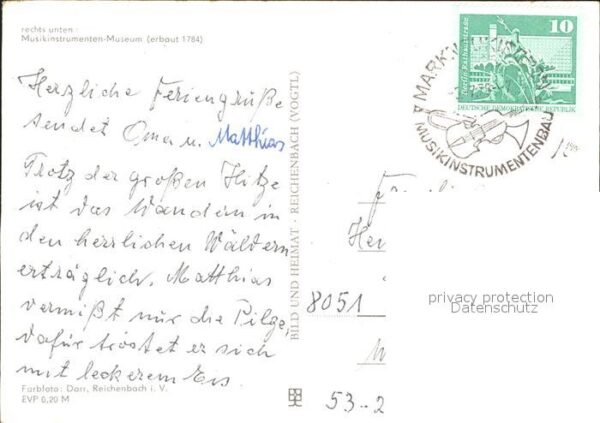 rechts unten :
Musikinstrumenten-Museum (erbaut 1784)
Herzliche Feriengrüße
sendet Oma u. Matthias
Trotz der großen Hitze
ist das Wandern in
den herrlichen Wäldern
erträglich. Matthias
vermißt nur die Pilze,
dafür tröstet er sich
mit leckerem Eis.
Farbfoto: Darr, Reichenbach i. V.
EVP 0,20 M
BILD UND HEIMAT · REICHENBACH (VOGTL)
10
Berlin, Rathausstraße
DEUTSCHE DEMOKRATISCHE REPUBLIK
MARKNEUKIRCHEN
MUSIKINSTRUMENTENBAU
8051
privacy protection
Datenschutz
53-2